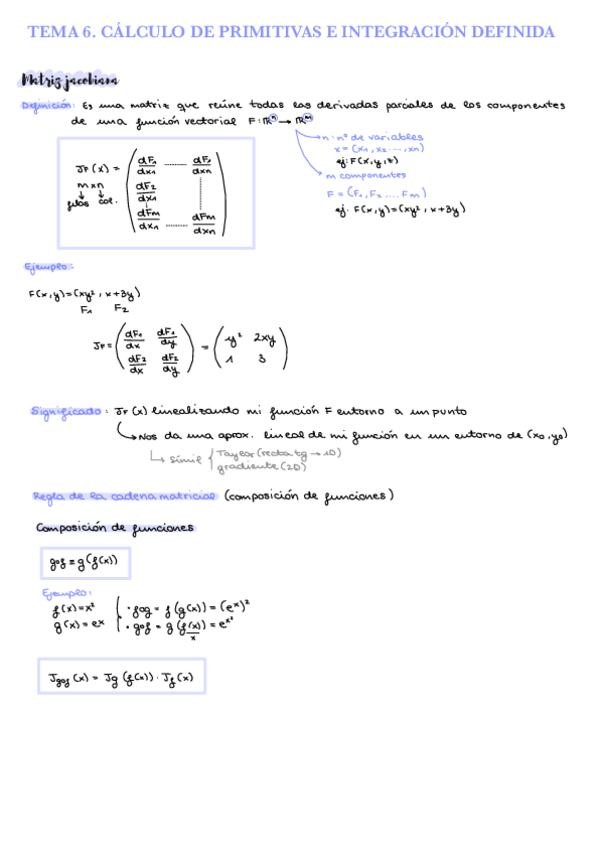 TEMA 6. CÁLCULO DE PRIMITIVAS E INTEGRACIÓN DEFINIDA
Matriz jacobiana
Definición: Es una matriz que reúne todas las derivadas parciales de los componentes
de una función vectorial F: ℝⁿ → ℝᵐ
n: nº de variables
x = (x₁, x₂ ..., xn)
ej: F(x,y,z)
m componentes
F = (F₁, F₂ .... Fm)
ej. F(x,y)=(xy², x+3y)
JF (x) = ( dF₁/dx₁ ........ dF₁/dxn
m x n dF₂/dx₁
filas col. dFm/dx₁ ........ dFm/dxn )
Ejemplo:
F(x,y)=(xy², x+3y)
F₁ F₂
JF = ( dF₁/dx dF₁/dy ) = ( y² 2xy )
( dF₂/dx dF₂/dy ) ( 1 3 )
Significado: JF (x) linealizando mi función F entorno a un punto
Nos da una aprox. lineal de mi función en un entorno de (x₀,y₀)
simil { Taylor (recta tg → 1D)
gradiente (2D)
Regla de la cadena matricial (composición de funciones)
Composición de funciones
gof = g(f(x))
Ejemplo:
f(x)=x² · fog = f(g(x)) = (eˣ)²
g(x)=eˣ · gof = g(f(x)) = e^x²
x
Jgof (x) = Jg (f(x)) · Jf (x)